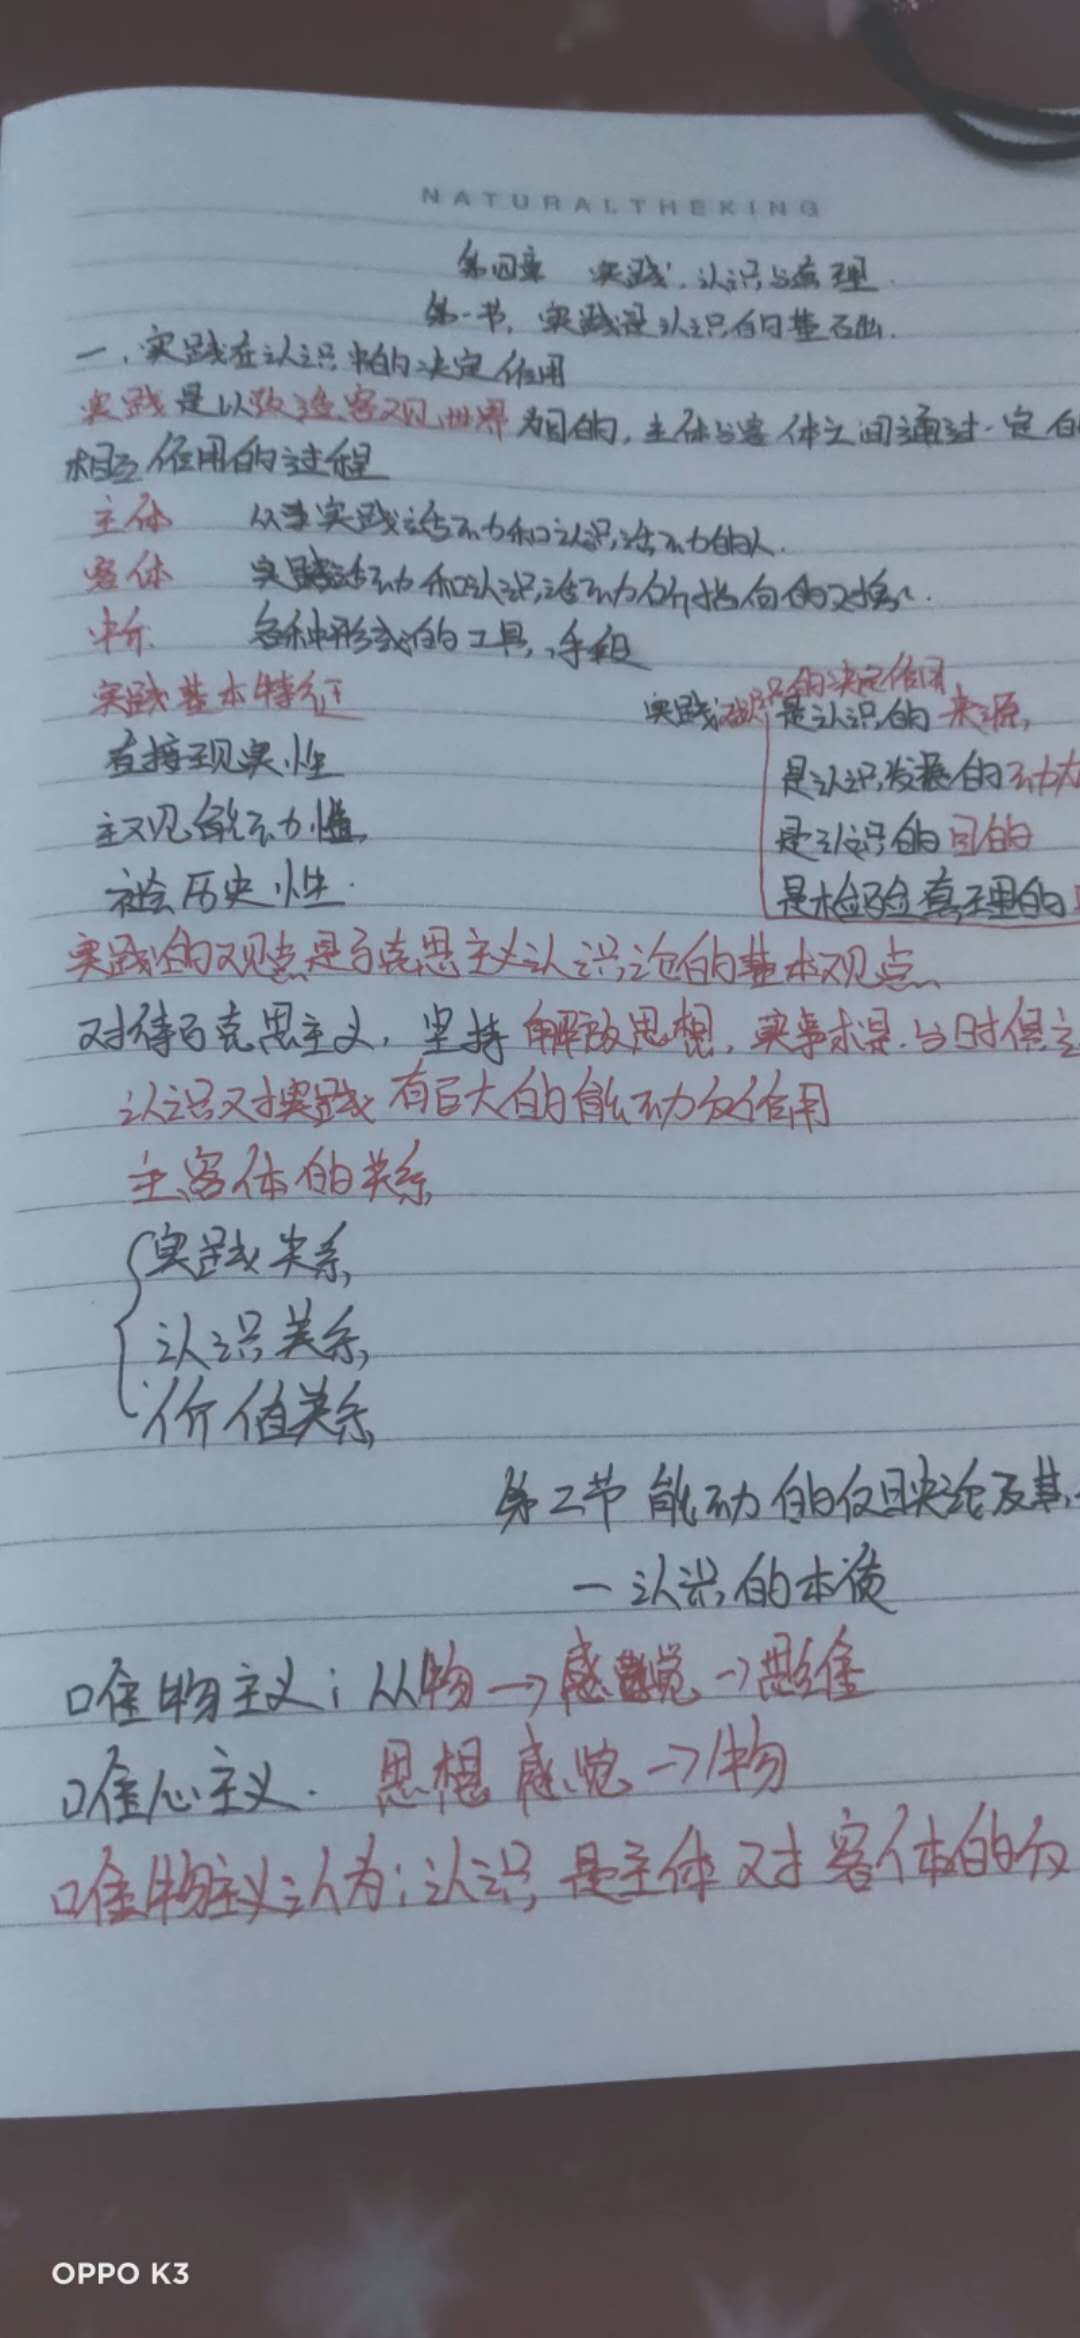 NATURALTHEKING
第四章 实践、认识与真理
第一节、实践是认识的基础
一、实践在认识中的决定作用
实践是以改造客观世界为目的，主体与客体之间通过一定的
相互作用的过程
主体 从事实践活动和认识活动的人.
客体 实践活动和认识活动所指向的对象.
中介 各种形式的工具,手段
实践基本特征
实践 的决定作用
是认识的来源,
直接现实性
是认识发展的动力
主观能动性
是认识的目的
社会历史性
是检验真理的
实践的观点是马克思主义认识论的基本观点
对待马克思主义，坚持解放思想,实事求是.与时俱
认识又对实践有巨大的能动反作用
主客体的关系
实践关系
认识关系
价值关系
第二节 能动的反映论及其
一认识的本质
唯物主义;从物→感觉→思维
唯心主义. 思想感觉→物
唯物主义认为;认识是主体对客体的反
OPPO K3